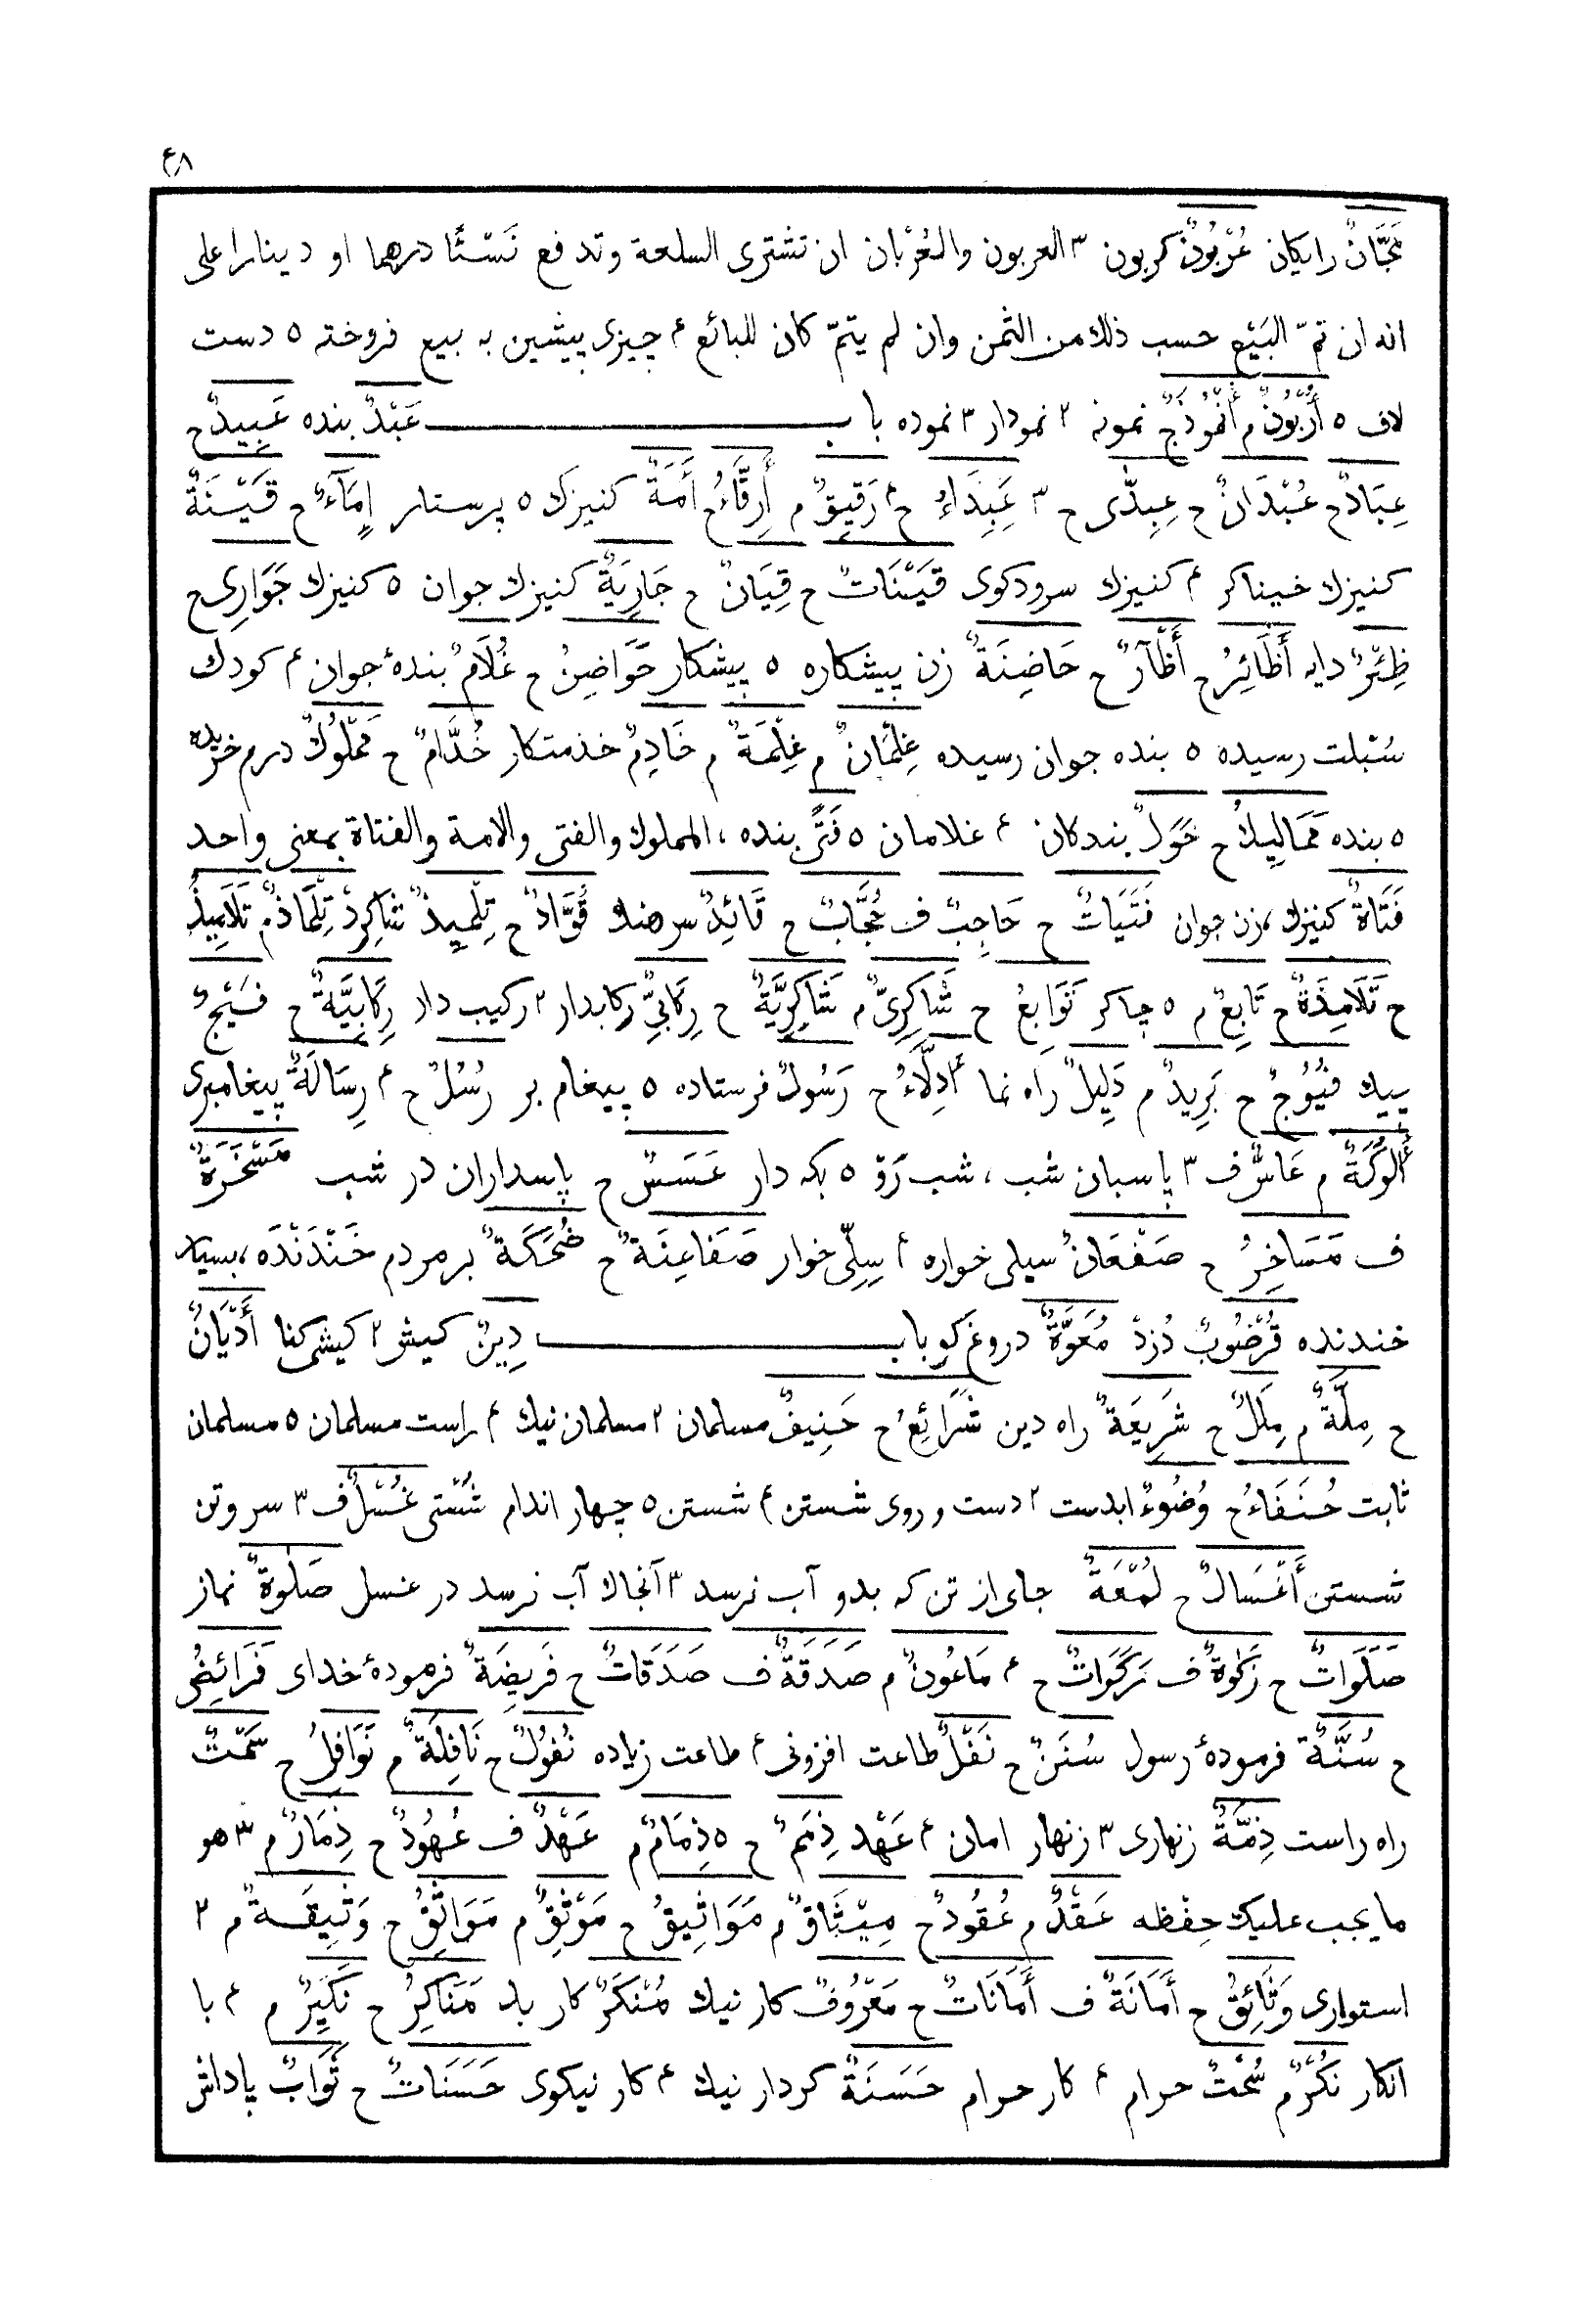 ۴۸
مَجَّانٌ رایکان عُرْبُونٌ کربون ۳ العربون والعُرْبان ان تشتری السلعة وتدفع نَسْئًا درهما او دینارا علی
انه ان تمّ البَیْع حسب ذلك من الثمن وان لم یتمّ کان للبائع ۴ چیزی پیشین به بیع فروخته ۵ دست
لاف ۵ أُرْبُونٌ م أُنْمُوذَجٌ نمونه ۲ نمودار ۳ نموده باب عَبْدٌ بنده عَبِیدٌ ح
عِبَادٌ ح عُبْدَانٌ ح عِبِدَّی ح ۳ عَبِدَاءُ ح ۴ رَقِیقٌ م أَرِقَّاءُ ح أَمَةٌ کنیزك ۵ پرستار إِمَآءٌ ح قَیْنَةٌ
کنیزك خیناکر ۴ کنیزك سرودکوی قَیْنَاتٌ ح قِیَانٌ ح جَارِیَةٌ کنیزك جوان ۵ کنیزك جَوَارِی ح
ظِئْرٌ دایه أَظَائِرُ ح أَظْآرٌ ح حَاضِنَةٌ زن پیشکاره ۵ پیشکار حَوَاضِنُ ح غُلَامٌ بندهٔ جوان ۴ کودك
سُبْلت رسیده ۵ بنده جوان رسیده غِلْمَانٌ م غِلْمَةٌ م خَادِمٌ خذمتکار خُدَّامٌ ح مَمْلُوكٌ درم خریده
۵ بنده مَمَالِیكُ ح خَوَلٌ بندکان ۴ غلامان ۵ فَتًی بنده، المملوك والفتی والامة والفتاة بمعنی واحد
فَتَاةٌ کنیزك، زن جوان فَتَیَاتٌ ح حَاجِبٌ ف حُجَّابٌ ح قَائِدٌ سرهنك قُوَّادٌ ح تِلْمِیذٌ شَاکِرد تِلْمَاذٌ م تَلَامِیذُ
ح تَلَامِذَةٌ ح تَابِعٌ م ۵ چاکر تَوَابِعُ ح شَاکِرِیٌّ م شَاکِرِیَّةٌ ح رِکَابِیٌّ رکابدار ۲ رکیب دار رِکَابِیَّةٌ ح فَیْجٌ
پیك فُیُوجٌ ح بَرِیدٌ م دَلِیلٌ راه نما ۴ أَدِلَّاءُ ح رَسُولٌ فرستاده ۵ پیغام بر رُسُلٌ ح ۴ رِسَالَةٌ پیغامبری
أَلُوكَةٌ م عَاسٌّ ف ۳ پاسبان شب، شب رَوْ ۵ یکه دار عَسَسٌ ح پاسداران در شب مَسْخَرَةٌ
ف مَسَاخِرُ ح صَفْعَانٌ سیلی خواره ۴ سِلِّی خوار صَفَاعِنَةٌ ح ضُحَکَةٌ بر مردم خَنْدَنْدَه، بسیار
خندنده قُرْضُوبٌ دُزدْ مُعَوَّةٌ دروغ کو باب دِینٌ کیش ۲ کیشی کنا أَدْیَانٌ
ح مِلَّةٌ م مِلَلٌ ح شَرِیعَةٌ راه دین شَرَائِعُ ح حَنِیفٌ مسلمان ۲ مسلمان نیك ۴ راست مسلمان ۵ مسلمان
ثابت حُنَفَاءُ ح وُضُوءٌ ابدست ۲ دست و روی شستن ۴ شستن ۵ چهار اندام شُسْتی غُسْلٌ ف ۳ سر وتن
شستن أَغْسَالٌ ح لُمْعَةٌ جای از تن که بدو آب نرسد ۳ آنجاك آب نرسد در غسل صَلٰوةٌ نماز
صَلَوَاتٌ ح زَکٰوةٌ ف زَکَوَاتٌ ح ۴ مَاعُونٌ م صَدَقَةٌ ف صَدَقَاتٌ ح فَرِیضَةٌ فرمودهٔ خدای فَرَائِضُ
ح سُنَّةٌ فرمودهٔ رسول سُنَنٌ ح نَفْلٌ طاعت افزونی ۴ طاعت زیاده نُفُولٌ ح نَافِلَةٌ م نَوَافِلُ ح سَمْتٌ
راه راست ذِمَّةٌ زنهاری ۳ زنهار امان ۴ عَهْد ذِمَمٌ ح ۵ ذِمَامٌ م عَهْدٌ ف عُهُودٌ ح ذِمَارٌ م ۳ هو
ما یجب علیك حِفْظه عَقْدٌ م عُقُودٌ ح مِیثَاقٌ م مَوَاثِیقُ ح مَوْثِقٌ م مَوَاثِقُ ح وَثِیقَةٌ م ۲
استواری وَثَائِقُ ح أَمَانَةٌ ف أَمَانَاتٌ ح مَعْرُوفٌ کار نیك مُنْکَرٌ کار بد مَنَاکِرُ ح نَکِیرٌ م ۴ با
انکار نُکُرٌ م سُحْتٌ حرام ۴ کار حرام حَسَنَةٌ کردار نیك ۴ کار نیکوی حَسَنَاتٌ ح ثَوَابٌ پاداش